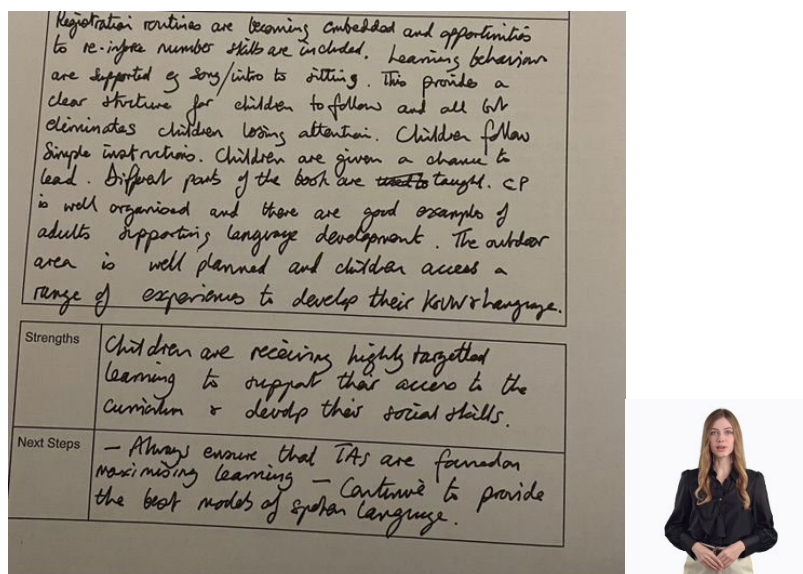 Registration routines are becoming embedded and opportunities
to re-inforce number skills are included. Learning behaviours
are supported eg song/intro to sitting. This provides a
clear structure for children to follow and all but
eliminates children losing attention. Children follow
simple instructions. Children are given a chance to
lead. Different parts of the book are used to taught. CP
is well organised and there are good examples of
adults supporting language development. The outdoor
area is well planned and children access a
range of experiences to develop their KUW & Language.
Strengths
Children are receiving highly targetted
learning to support their access to the
curriculum & develop their social skills.
Next Steps
- Always ensure that TAs are focused on
maximising learning - Continue to provide
the best models of spoken language.